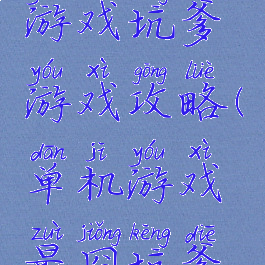 游戏坑爹
yóu xì gōng lüè
游戏攻略(
dān jī yóu xì
单机游戏
zuì jiǒng kēng diē
最囧坑爹